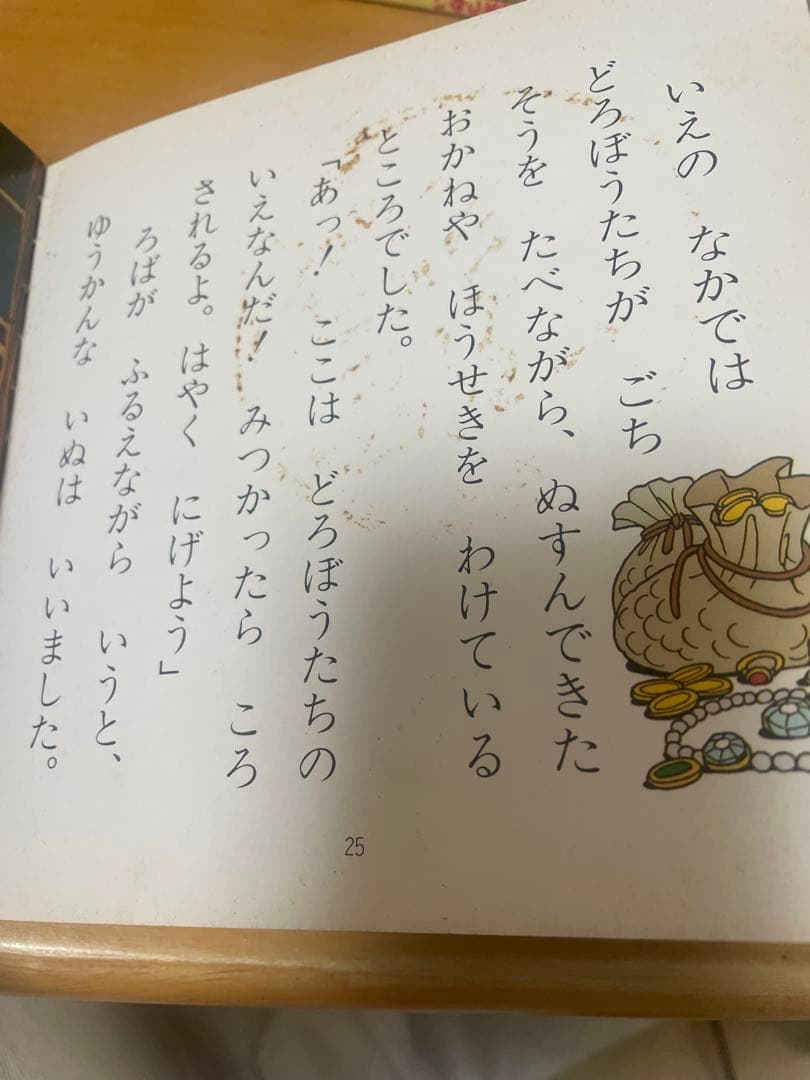 いえの　なかでは
どろぼうたちが　ごち
そうを　たべながら、ぬすんできた
おかねや　ほうせきを　わけている
ところでした。
「あっ！　ここは　どろぼうたちの
いえなんだ！　みつかったら　ころ
されるよ。はやく　にげよう」
ろばが　ふるえながら　いうと、
ゆうかんな　いぬは　いいました。
25